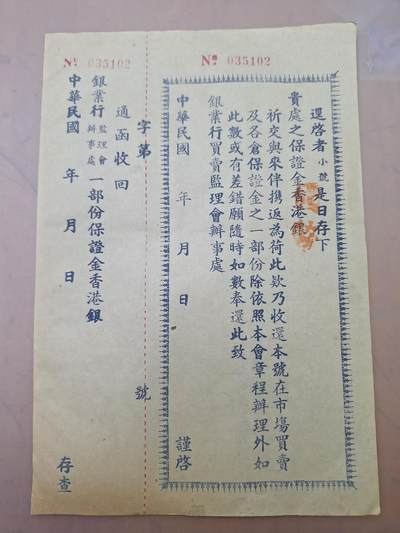 No 035102
逕啓者小號是日存下
貴處之保證金香港銀
祈交與來伴携返為荷此欵乃收還本號在市場買賣
及各倉保證金之一部份除依照本會章程辦理外如
此數或有差錯願隨時如數奉還此致
銀業行買賣監理會辦事處
中華民國 年 月 日 謹啓
字第 號
No 035102
通函收回
銀業行監理會辦事處一部份保證金香港銀
中華民國 年 月 日 存查